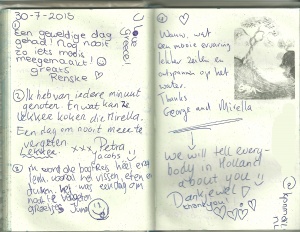 30-7-2015
Een geweldige dag
gehad! Nog nooit
zo iets moois
meegemaakt!
greats
Renske ♡
Ik heb van iedere minuut
genoten. En wat kan ze
lekker koken die Mirella.
Een dag om nooit meer te
vergeten
xxx Petra
Jacobs
het vissen, eten en
het was een dag om
nooit te vergeten
groetjes
Wauw, wat
een mooie ervaring
lekker zeilen en
ontspannen op het
water.
Thanks
George and Mirella
We will tell every-
body in Holland
about you
Dankjewel
thankyou!